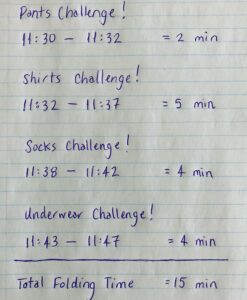 Pants Challenge!
11:30 - 11:32 = 2 min
Shirts Challenge!
11:32 - 11:37 = 5 min
Socks Challenge!
11:38 - 11:42 = 4 min
Underwear Challenge!
11:43 - 11:47 = 4 min
Total Folding Time = 15 min